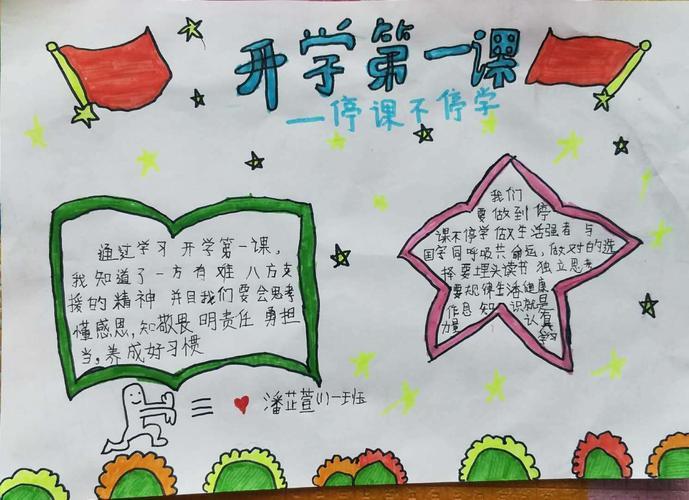 开学第一课
—停课不停学
通过学习 开学第一课,
我知道了一方有难 八方支
援的精神 并且我们要会思考
懂感恩,知敬畏 明责任 勇担
当,养成好习惯
我们
要做到停
课不停学做生活强者 与
国家同呼吸共命运,做对的选
择要埋头读书 独立思考
要规律生活健康
作息 知识就是
力量 认真
学习
潘芷萱(1)一班